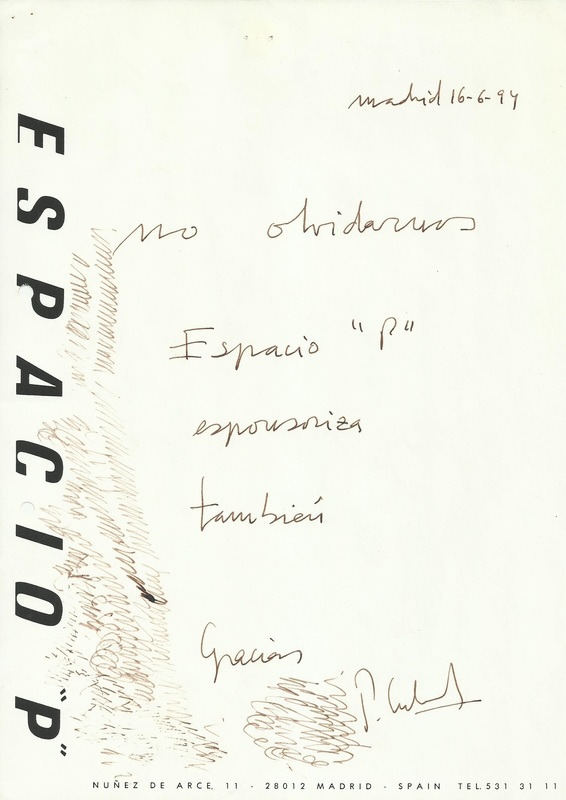 madrid 16-6-94
no olvidarnos
Espacio "P"
esponsoriza
también
Gracias
P.
ESPACIO "P"
NUÑEZ DE ARCE, 11 - 28012 MADRID - SPAIN TEL.531 31 11